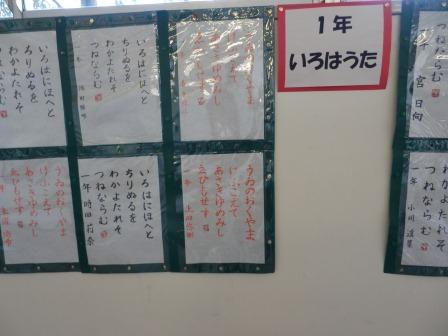 1年
いろはうた
いろはにほへと
ちりぬるを
わかよたれそ
つねならむ
一年
いろはにほへと
ちりぬるを
わかよたれそ
つねならむ
一年
うゐのおくやま
けふこえて
あさきゆめみし
ゑひもせす
つねならむ
宮日向
うゐのおくやま
けふこえて
あさきゆめみし
ゑひもせす
一年
いろはにほへと
ちりぬるを
わかよたれそ
つねならむ
一年
うゐのおくやま
けふこえて
あさきゆめみし
ゑひもせす
一年
いろはにほへと
ちりぬるを
わかよたれそ
つねならむ
一年